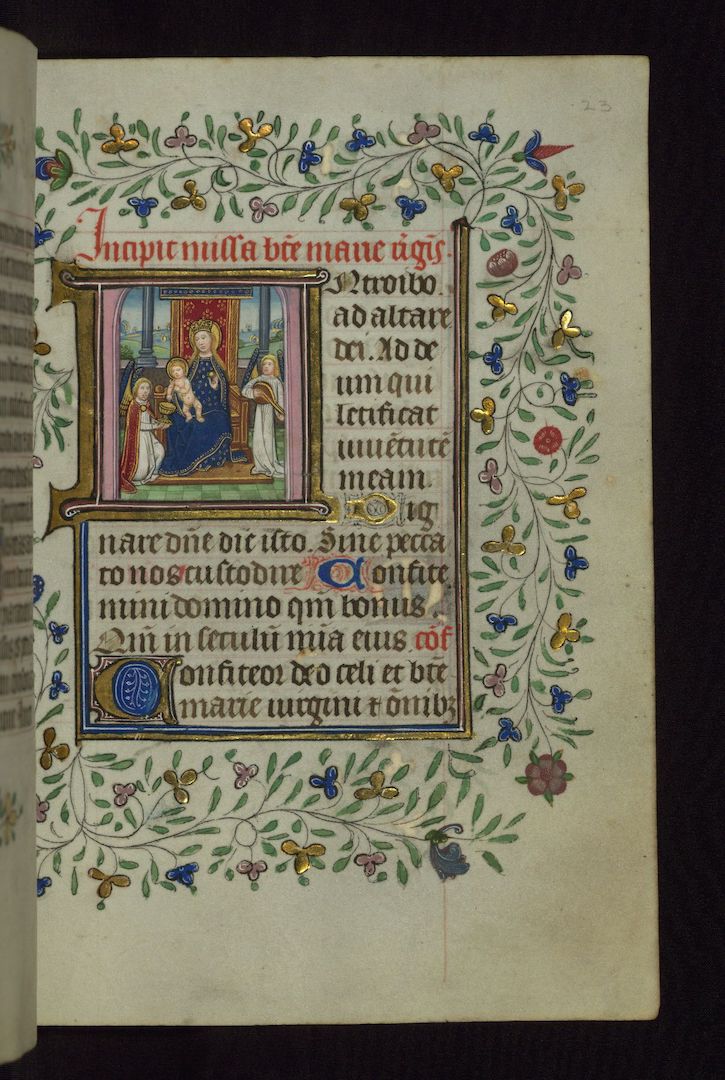 23
Incipit missa bte marie v̄gis.
Ntroibo
ad altare
dei. Ad de
um qui
letificat
iuuētutē
meam.
Dig
nare dn̄e die isto. Sine pecca
to nos custodire Confite
mini domino qm̄ bonus
Qm̄ in seculū mīa eius cōf
Confiteor deo celi et bt̄e
marie uirgini ⁊ ōnibꝫ